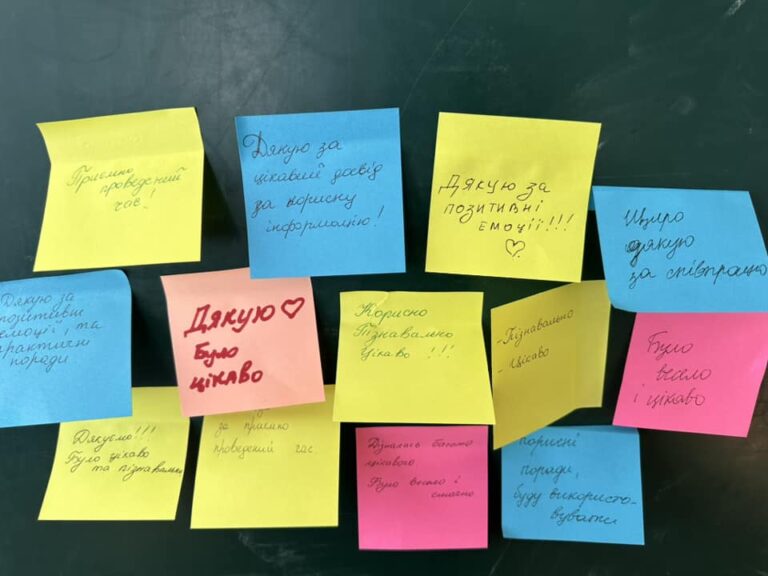 Приємно
проведений
час!
Дякую за
цікавий довід
за корисну
інформацію!
Дякую за
позитивні
емоції!!!
Щиро
дякую
за співпрацю
Дякую за
позитивні
емоції, та
практичні
поради
Дякую
Було
цікаво
Корисно
Пізнавально
Цікаво !!!
- Пізнавально
- Цікаво
Було
весело
і цікаво
Дякуємо!!!
Було цікаво
та пізнавально
за приємно
проведений час.
Дізнались багато
цікавого
Було весело і
смачно
корисні
поради,
буду використо-
вувати